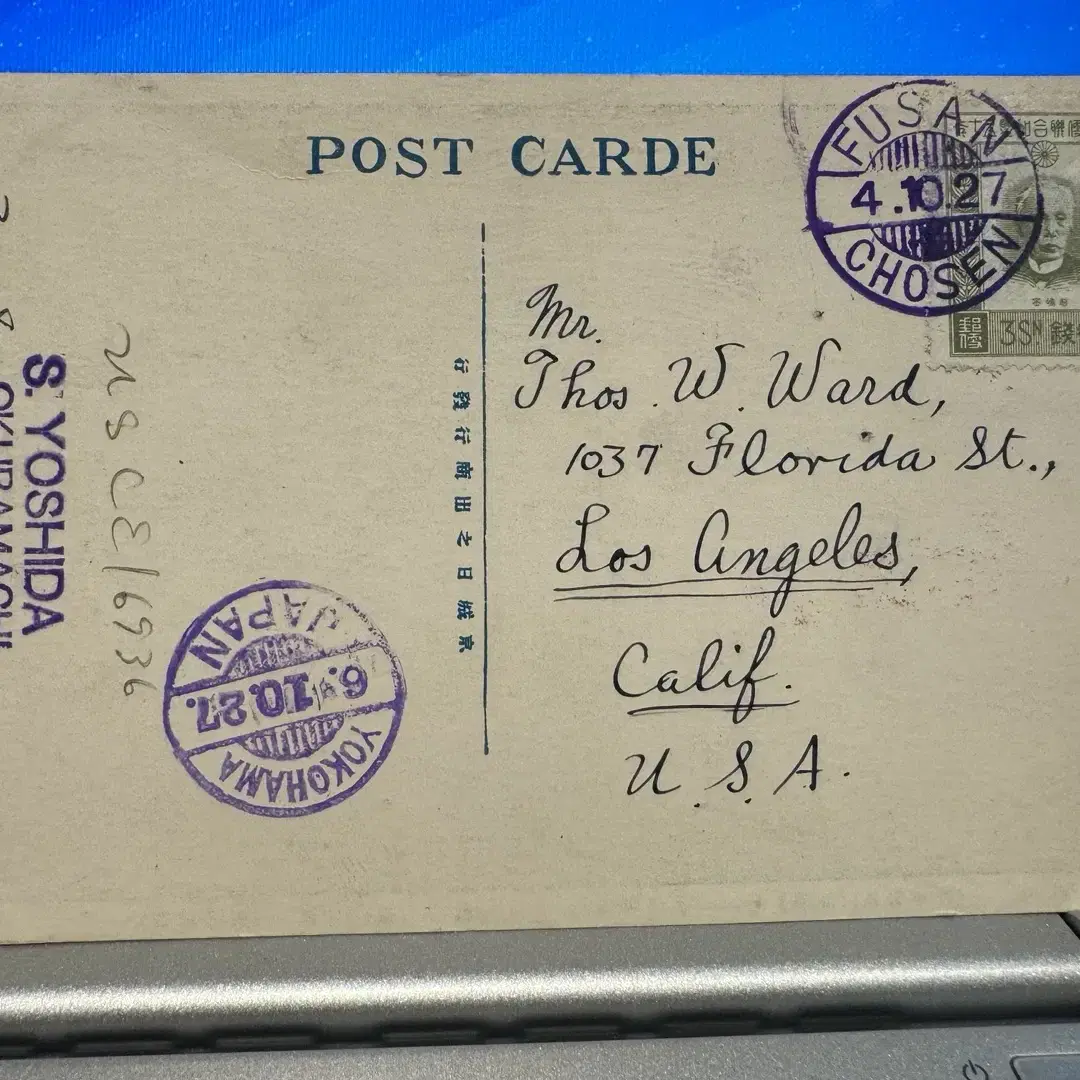 POST CARDE
FUSAN
4.10.27
CHOSEN
3SN 錢
郵便
Mr.
Thos. W. Ward,
1037 Florida St.,
Los Angeles,
Calif.
U.S.A.
京城日之出商行發行
S. YOSHIDA
JAPAN
6.10.27.
YOKOHAMA